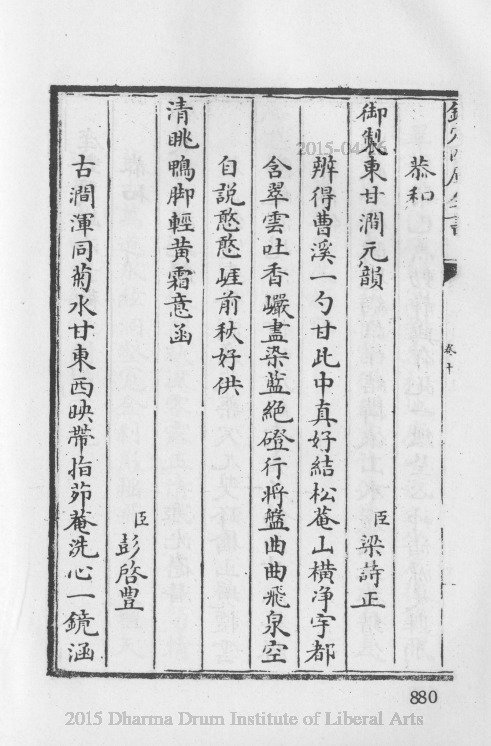 欽定四庫全書
卷十
恭和
御製東甘澗元韻
臣梁詩正
辨得曹溪一勺甘此中真好結松菴山橫净宇都
含翠雲吐香巖盡染藍絶磴行將艦曲曲飛泉空
自説憨憨崕前秋好供
清眺鴨脚輕黄霜意函
臣彭啓豐
古澗渾同菊水甘東西映帶指茆菴洗心一鏡涵
880
2015-04-16
2015 Dharma Drum Institute of Liberal Arts